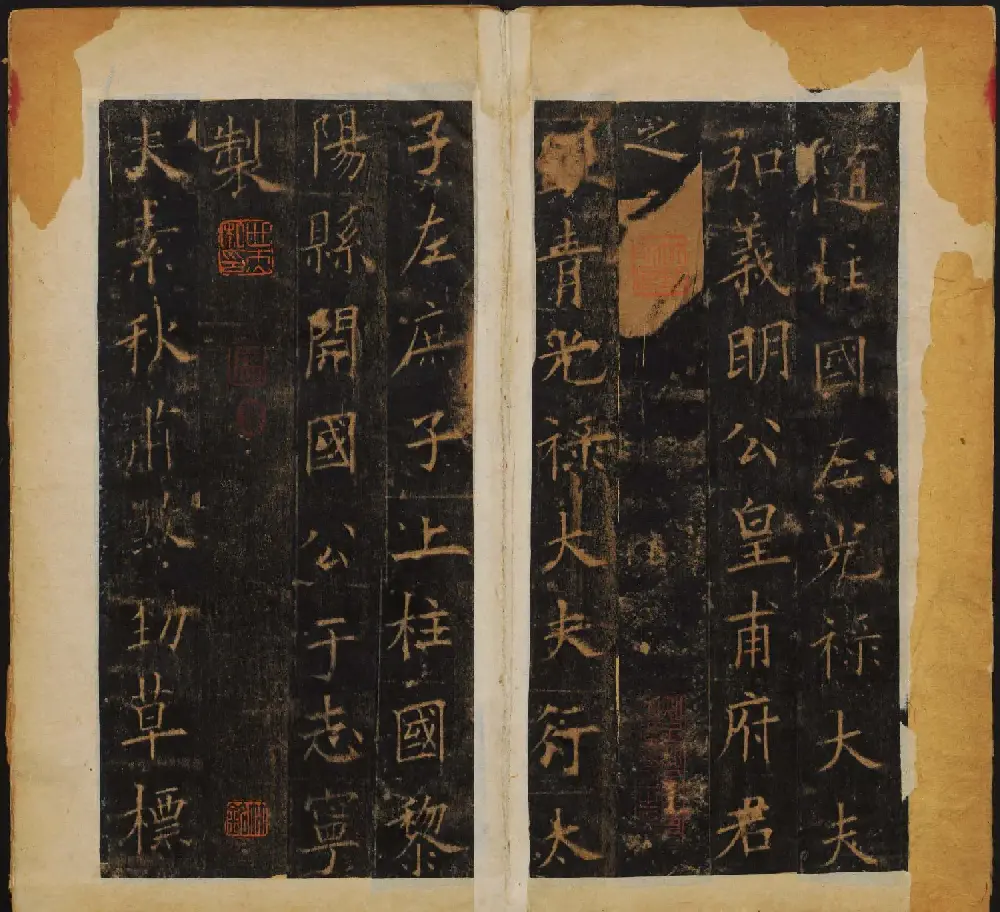 隨柱國左光祿大夫
弘義明公皇甫府君
之
青光祿大夫行太
子左庶子上柱國黎
陽縣開國公于志寧
製
夫素秋肅勁草標